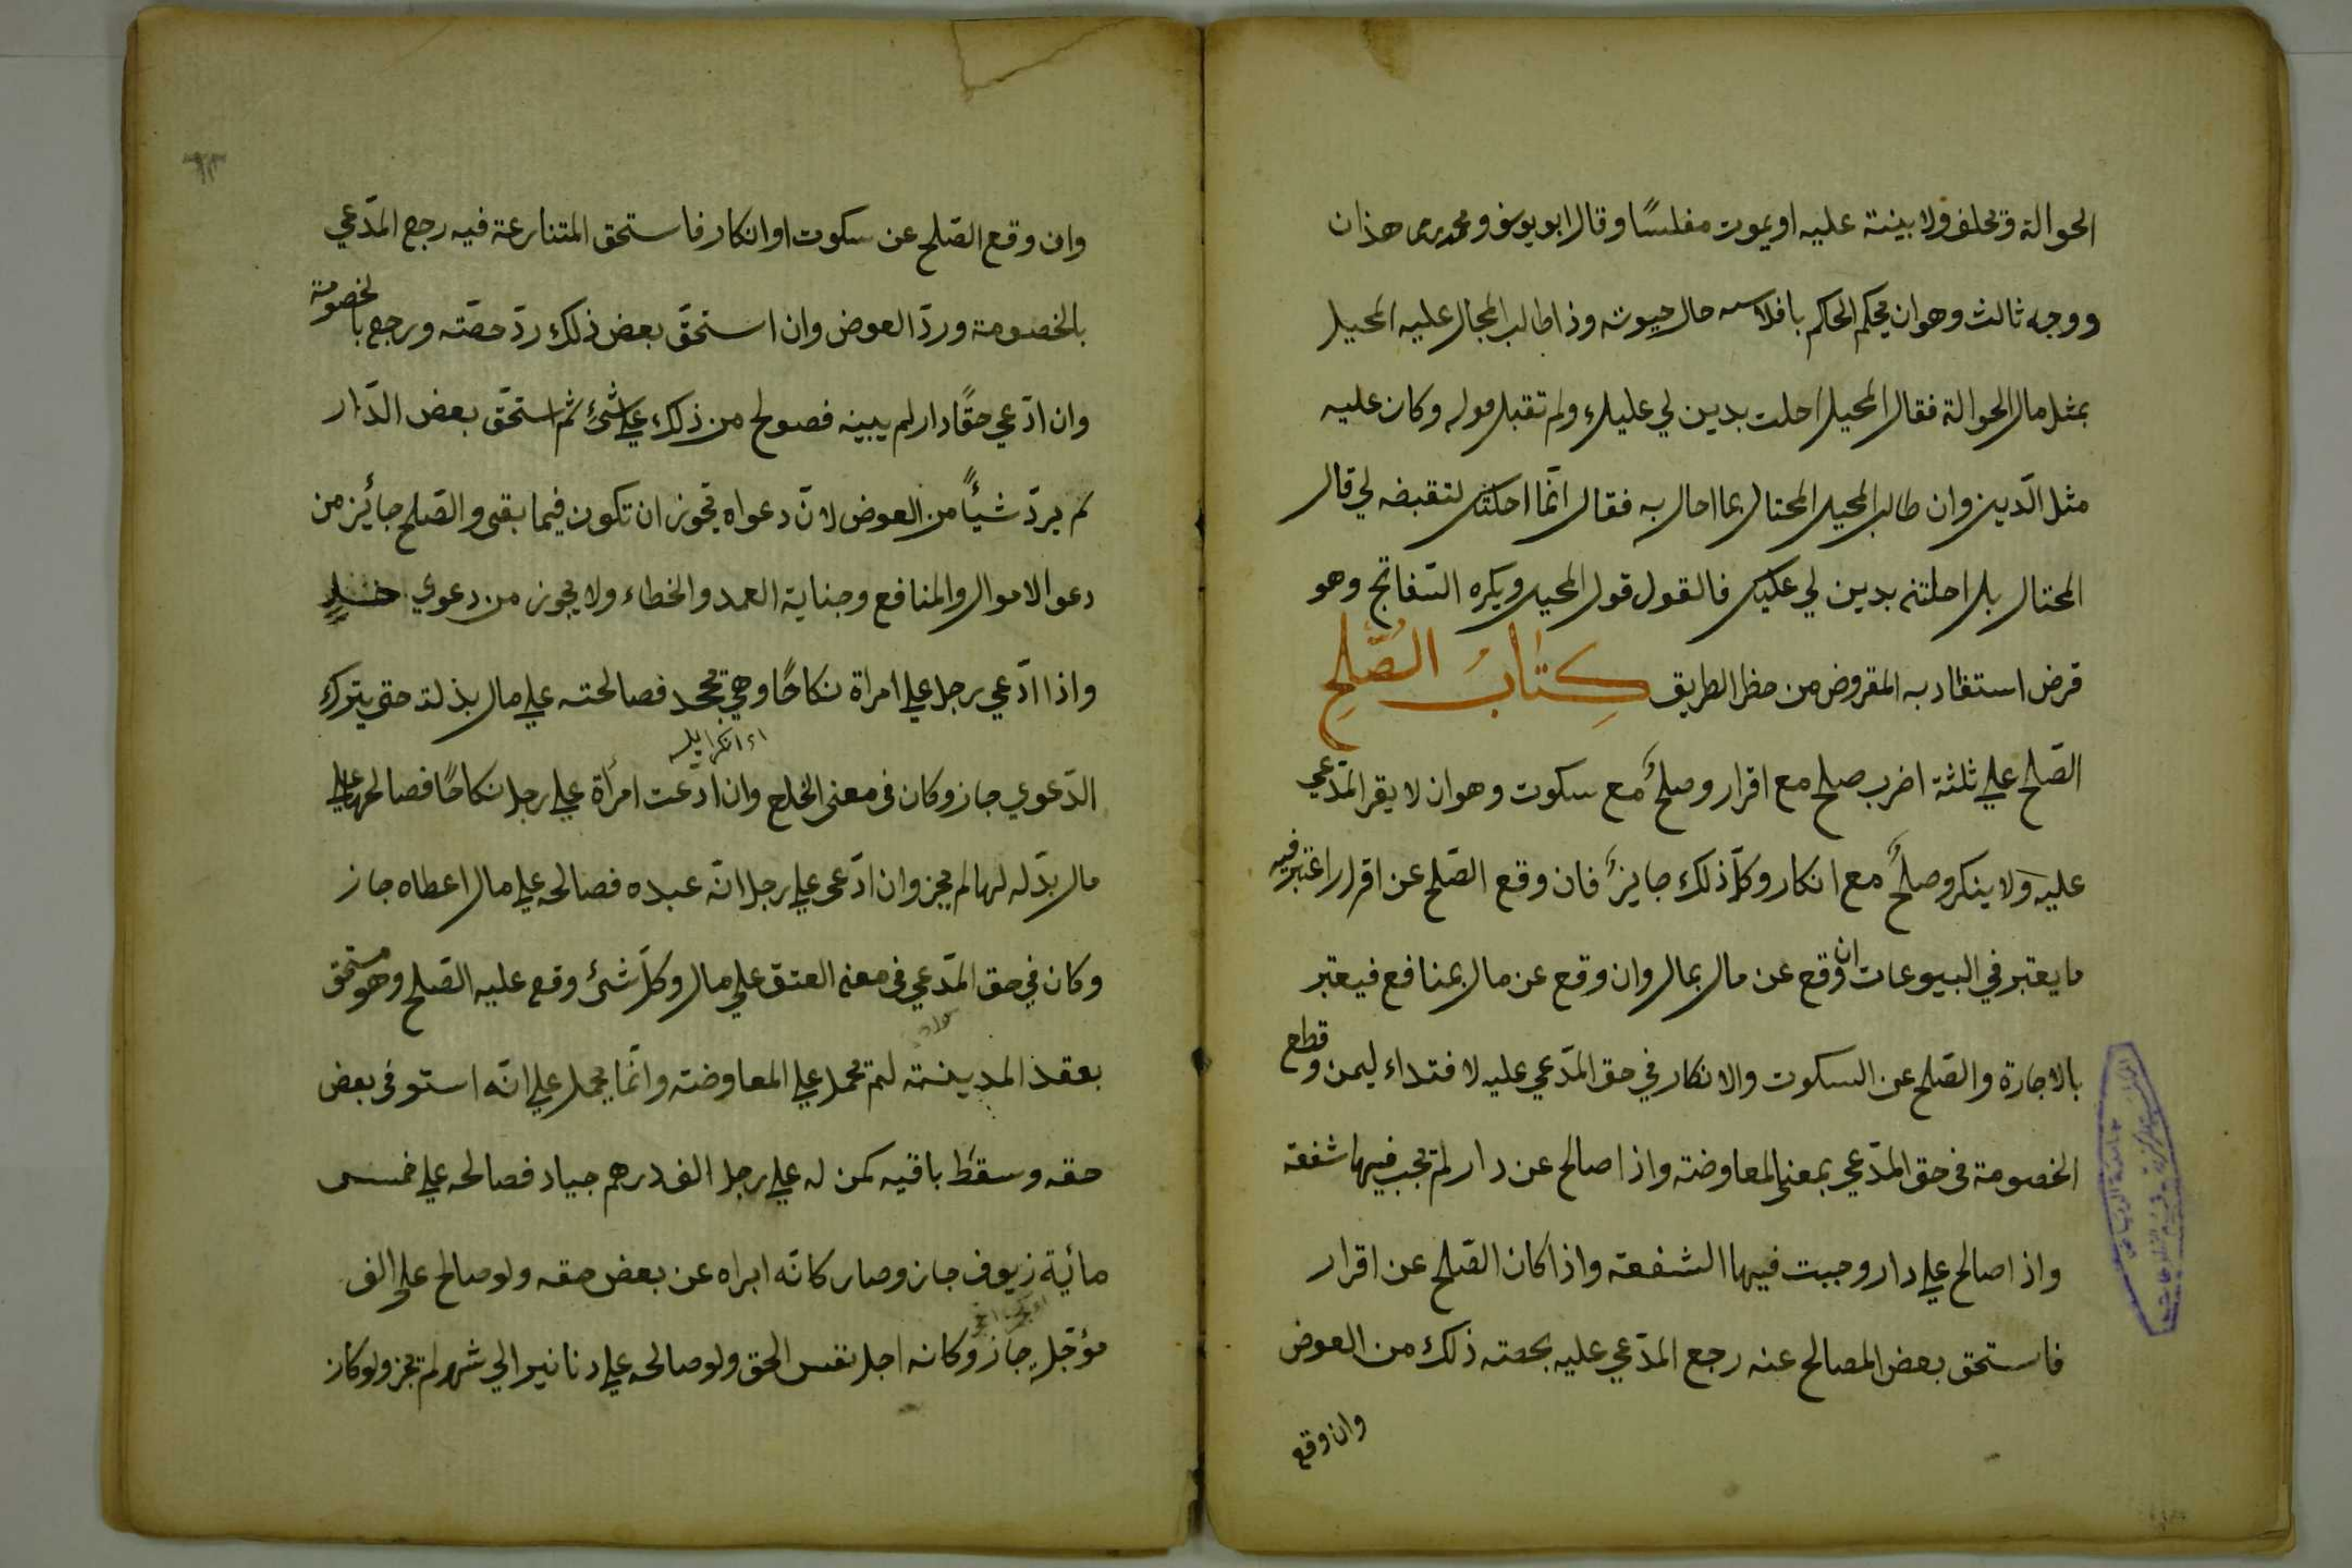 الحوالة ويحلف ولا بينة عليه او يموت مفلسًا وقال ابو يوسف ومحمد رح هذان
ووجه ثالث وهو ان يحكم الحاكم بافلاسه حال حيوته وذا طالب المحال عليه المحيل
بمثل مال الحوالة فقال المحيل احلت بدين لي عليك ولم تقبل قوله وكان عليه
مثل الدّين وان طالب المحيل المحتال بما احال به فقال انّما احلتك لتقبضه لي قال
المحتال بل احلتنى بدين لي عليك فالقول قول المحيل ويكره السّفاتج وهو
قرض استفاد به المقروض من حظر الطريق كِتَابُ الصُّلحِ
الصّلح علي ثلثة اضرب صلح مع اقرار وصلحٌ مع سكوت وهو ان لا يقر المدّعي
عليه ولا ينكر وصلحٌ مع انكار وكلّ ذلك جايزٌ فان وقع الصّلح عن اقرار اعتبر فيه
ما يعتبر في البيوعات ان وقع عن مال بمال وان وقع عن مال بمنافع فيعتبر
بالاجارة والصّلح عن السكوت والانكار في حق المدّعي عليه لافتداء ليمن وقطع
الخصومة فى حق المدّعي بمعنى المعاوضة واذا صالح عن دار لم تجب فيها شفعة
واذا صالح علي دار وجبت فيها الشفعة واذا كان الصّلح عن اقرار
فاستحق بعض المصالح عنه رجع المدّعي عليه بحصته ذلك من العوض
وان وقع
وان وقع الصّلح عن سكوت او انكار فاستحق المتنازعة فيه رجع المدّعي
بالخصومة وردّ العوض وان استحقّ بعض ذلك ردّ حصّته ورجع بالخصومة
وان ادّعي حقًا دار لم يبينه فصولح من ذلك علي شئ ثم استحقّ بعض الدّار
لم يردّ شيئًا من العوض لانّ دعواه يجوز ان تكون فيما بقى والصّلح جائز من
دعو الاموال والمنافع وجناية العمد والخطاء ولا يجوز من دعوي
واذا ادّعي رجل علي امراة نكاحًا وهي تجحد فصالحته علي مال بذلته حتى يترك
الدّعوي جاز وكان فى معنى الخلع وان ادّعت امرأة علي رجل نكاحًا فصالحها علي
مال بدّله لها لم يجز وان ادّعى علي رجل انّه عبده فصالحه علي مال اعطاه جاز
وكان في حق المدّعي فى معنى العتق علي مال وكلّ شئ وقع عليه الصّلح وهو مستحق
بعقد المدينة لم تحمل علي المعاوضة وانّما يحمل علي انّه استوفى بعض
حقه وسقط باقيه كمن له علي رجل الف درهم جياد فصالحه علي خمس
مائية زيوف جاز وصار كانّه ابراه عن بعض حقه ولو صالح على الف
مؤجّلٍ جاز وكانه اجل نفس الحق ولو صالحه علي دنانير الي شهر لم تجز ولو كان